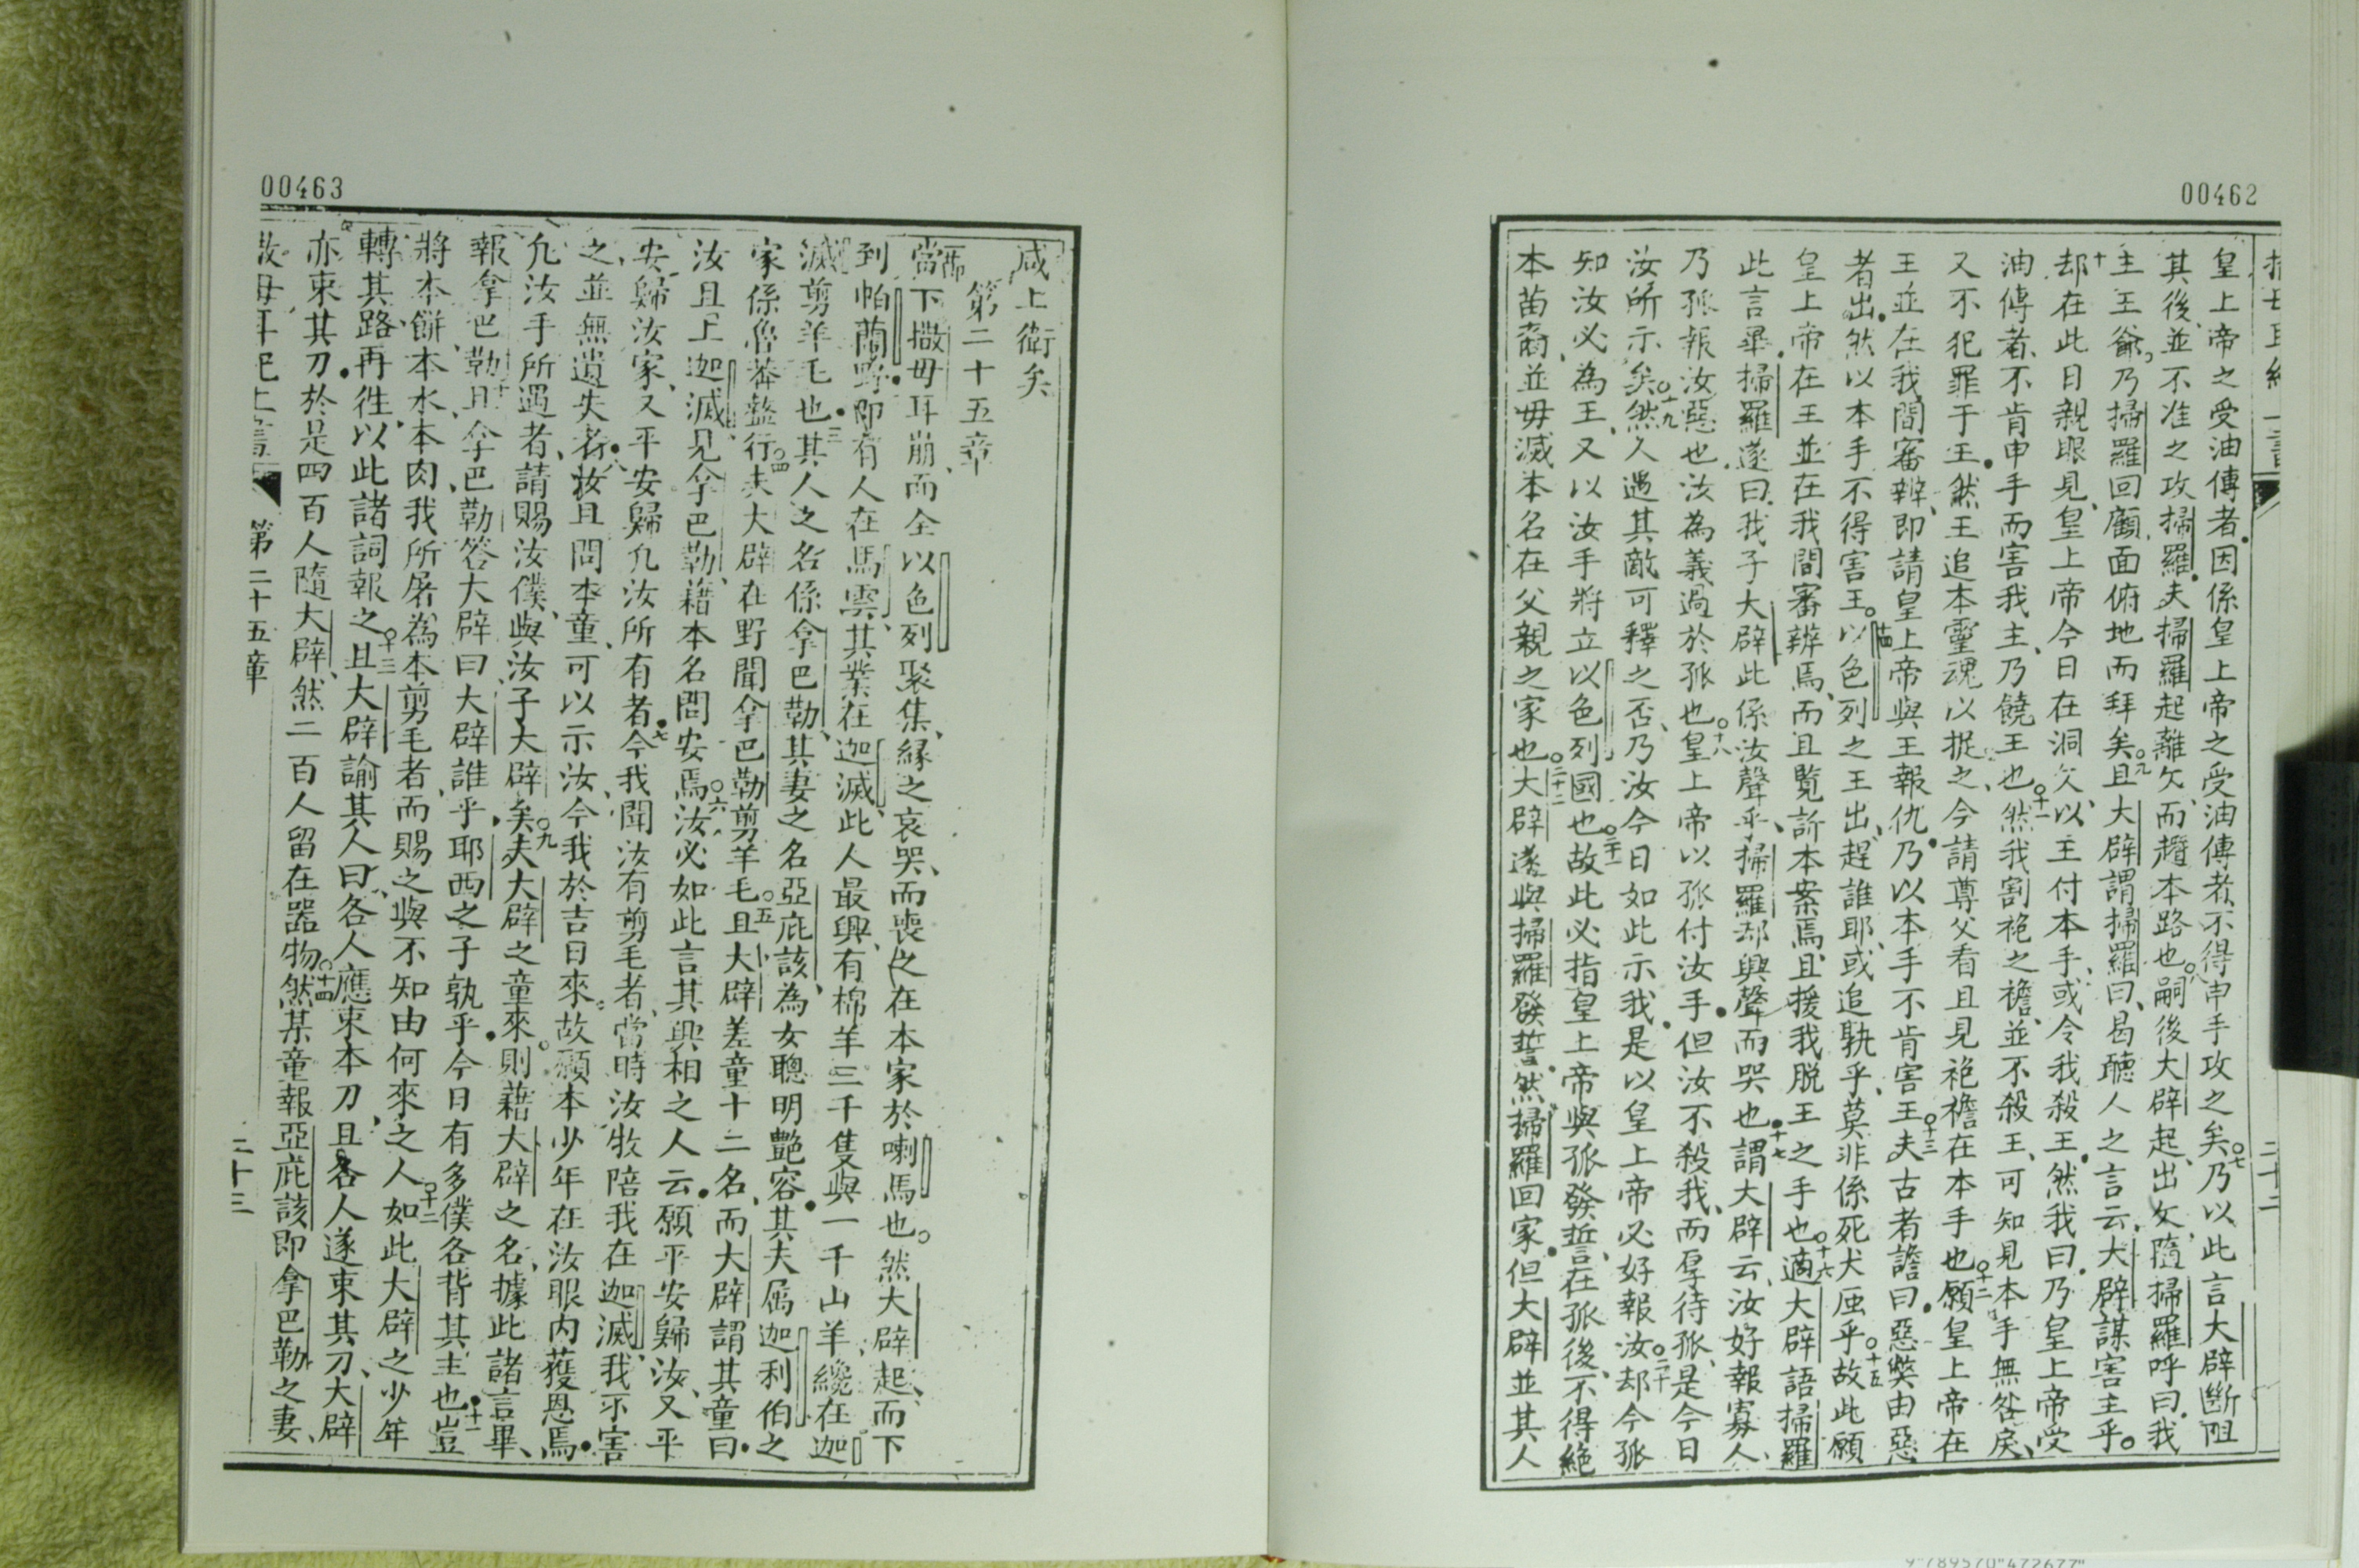 00462
皇上帝之受油傳者因係皇上帝之受油傳者不得申手攻之矣七乃以此言大辟斷阻
其後並不准之攻掃羅夫掃羅起離穴而趲本路也八嗣後大辟起出穴隨掃羅呼曰我
主王爺乃掃羅回顧面俯地而拜矣九且大辟謂掃羅曰曷聽人之言云大辟謀害主乎
十却在此日親眼見皇上帝今日在洞穴以主付本手或令我殺王然我曰乃皇上帝受
油傳者不肯申手而害我主乃饒王也十一然我割袍之襜並不殺王可知見本手無咎戾
又不犯罪于王然王追本靈魂以捉之今請尊父看且見袍襜在本手也十二願皇上帝在
王並在我間審辦即請皇上帝與王報仇乃以本手不肯害王十三夫古者譫曰惡獘由惡
者出然以本手不得害王十四以色列之王出趕誰耶或追孰乎莫非係死犬虱乎十五故此願
皇上帝在王並在我間審辦焉而且覧訢本案焉且援我脱王之手也十六適大辟語掃羅
此言畢掃羅遂曰我子大辟此係汝聲乎掃羅却興聲而哭也十七謂大辟云汝好報寡人
乃孤報汝惡也汝為義過於孤也十八皇上帝以孤付汝手但汝不殺我而厚待孤是今日
汝所示矣十九然人遇其敵可釋之否乃汝今日如此示我是以皇上帝必好報汝二十却今孤
知汝必為王又以汝手將立以色列國也二十一故此必指皇上帝與孤發誓在孤後不得絕
本苗裔並毋滅本名在父親之家也二十二大辟遂與掃羅發誓然掃羅回家但大辟並其人
二十二
00463
咸上衛矣
第二十五章
當下撒母耳崩而全以色列聚集縁之哀哭而喪之在本家於喇馬也然大辟起而下
到帕蘭野二即有人在馬雲其業在迦滅此人最興有棉羊三千隻與一千山羊纔在迦
滅剪羊毛也三其人之名係拿巴勒其妻之名亞庇該為女聰明艷容其夫属迦利伯之
家係魯莽盩行四夫大辟在野聞拿巴勒剪羊毛五且大辟差童十二名而大辟謂其童曰
汝且上迦滅見拿巴勒藉本名問安焉六汝必如此言其興相之人云願平安歸汝又平
安歸汝家又平安歸凢汝所有者七今我聞汝有剪毛者當時汝牧陪我在迦滅我不害
之並無遺失者八汝且問本童可以示汝今我於吉日來故願本少年在汝眼内獲恩焉
凢汝手所遇者請賜汝僕與汝子大辟矣九夫大辟之童來則藉大辟之名據此諸言畢
報拿巴勒十且拿巴勒答大辟曰大辟誰乎耶西之子孰乎今日有多僕各背其主也十一豈
將本餅本水本肉我所屠為本剪毛者而賜之與不知由何來之人如此十二大辟之少年
轉其路再徃以此諸詞報之十三且大辟諭其人曰各人應束本刀且各人遂束其刀大辟
亦束其刀於是四百人隨大辟然二百人留在器物十四然某童報亞庇該即拿巴勒之妻
第二十五章
二十三